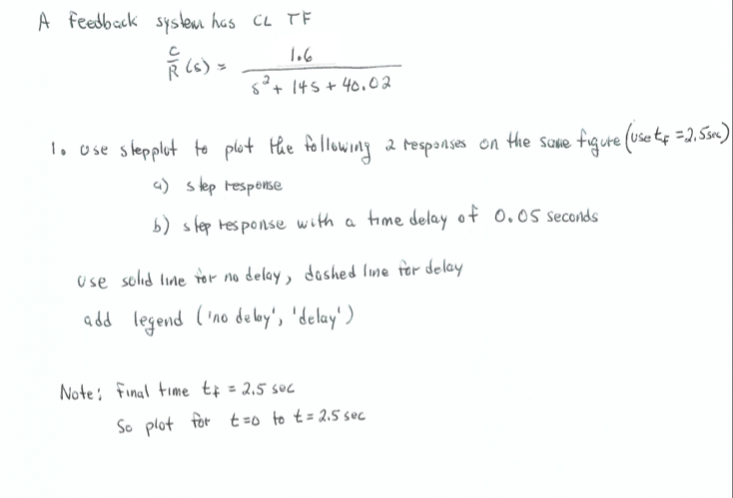 A feedback system has CL TF
C/R (s) = 1.6 / s² + 14s + 40.02
1. Use stepplot to plot the following 2 responses on the same figure (use tf = 2.5 sec)
a) step response
b) step response with a time delay of 0.05 seconds
Use solid line for no delay, dashed line for delay
add legend ('no delay', 'delay')
Note: Final time tf = 2.5 sec
So plot for t=0 to t = 2.5 sec